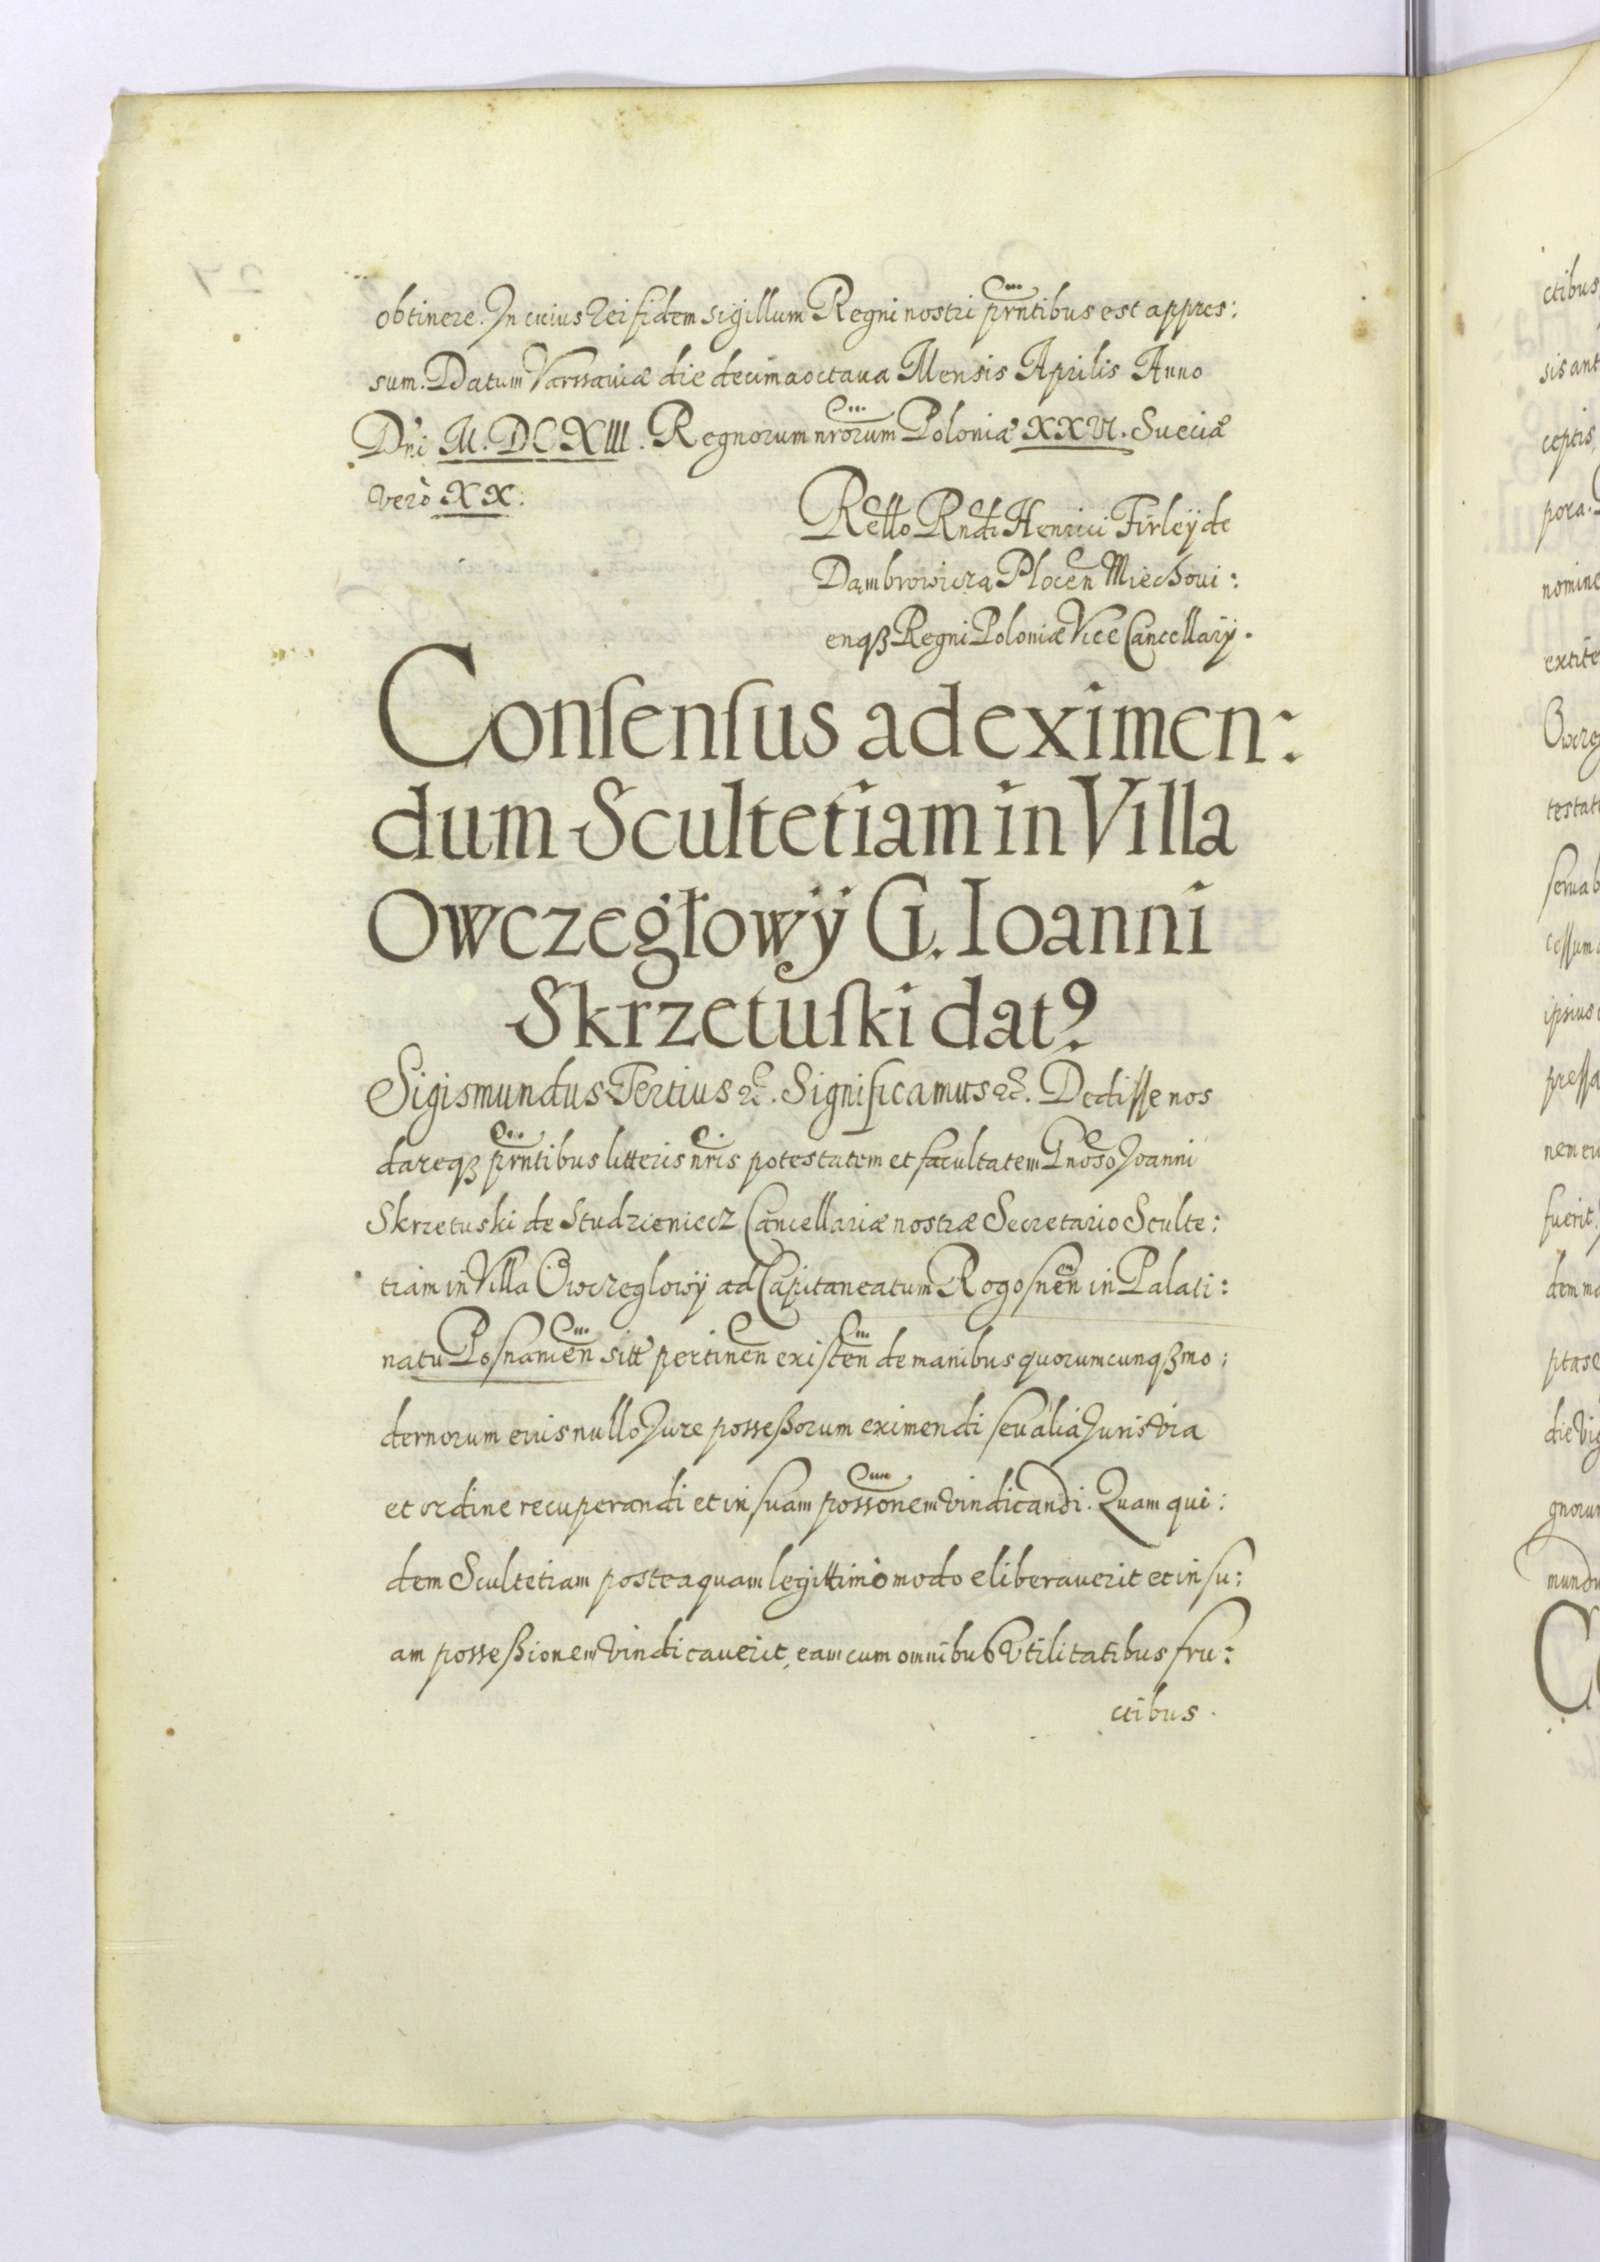 obtinere. In cuius rei fidem sigillum Regni nostri prntibus est appres:
sum. Datum Varssaviæ die decima octava Mensis Aprilis Anno
Dni M. DCXIII. Regnorum nrorum Poloniæ XXVI. Sueciæ
vero XX.
Rello Rndi Henrici Firleÿ de
Dambrowicza Plocen Miechovi:
enqꝫ Regni Poloniæ Vice Cancellarÿ.
Conſenſus ad eximen:
dum Scultetiam in Villa
Owczegłowÿ G. Ioanni
Skrzetuſki datꝰ
Sigismundus Tertius &c. Significamus &c. Dedisse nos
dareqꝫ prntibus litteris nris potestatem et facultatem Gnoso Joanni
Skrzetuski de Studzieniecz Cancellariæ nostræ Secretario Sculte:
tiam in Villa Owczeglowÿ ad Capitaneatum Rogosnen in Palati:
natu Posnanien sitt pertinen existen de manibus quorumcunqꝫ mo:
dernorum eius nullo Jure posseßorum eximendi seu alia Juris via
et ordine recuperandi et in suam possonem vindicandi. Quam qui:
dem Scultetiam posteaquam legittimo modo eliberaverit et in su:
am posseßionem vindicaverit, eam cum omnibus Vtilitatibus fru:
ctibus.
ctibus
sis ant
ceptis
pora.
nomine
testat
ipsius
pressa
nen eu
fuerit
dem mo
die Vig
gnorum
mundu